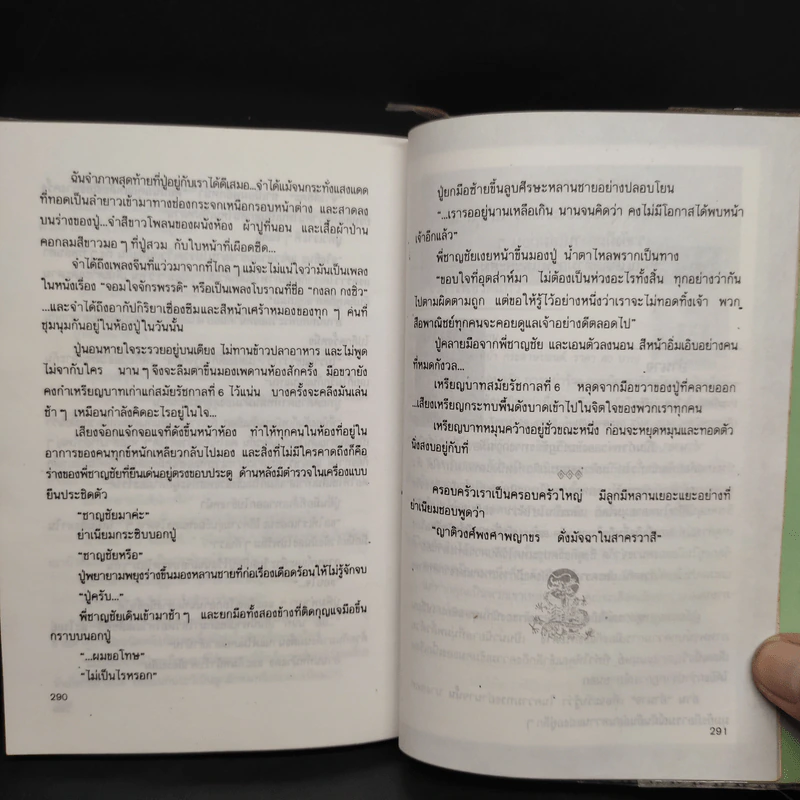 ฉันจำภาพสุดท้ายที่ปู่อยู่กับเราได้ดีเสมอ...จำได้แม้จนกระทั่งแสงแดด
ที่ทอดเป็นลำยาวเข้ามาทางช่องกระจกเหนือกรอบหน้าต่าง และสาดลง
บนร่างของปู่...จำสีขาวโพลนของผนังห้อง ผ้าปูที่นอน และเสื้อผ้าป่าน
คอกลมสีขาวมอ ๆ ที่ปู่สวม กับใบหน้าที่เผือดซีด...
จำได้ถึงเพลงจีนที่แว่วมาจากที่ไกล ๆ แม้จะไม่แน่ใจว่ามันเป็นเพลง
ในหนังเรื่อง "จอมใจจักรพรรดิ" หรือเป็นเพลงโบราณที่ชื่อ "กงลก กงชิ่ว"
...และจำได้ถึงอากัปกิริยาเซื่องซึมและสีหน้าเศร้าหมองของทุก ๆ คนที่
ชุมนุมกันอยู่ในห้องปู่ในวันนั้น
ปู่นอนหายใจระรวยอยู่บนเตียง ไม่ทานข้าวปลาอาหาร และไม่พูด
ไม่จากับใคร นาน ๆ จึงจะลืมตาขึ้นมองเพดานห้องสักครั้ง มือขวายัง
คงกำเหรียญบาทเก่าแก่สมัยรัชกาลที่ 6 ไว้แน่น บางครั้งจะคลึงมันเล่น
ช้า ๆ เหมือนกำลังคิดอะไรอยู่ในใจ...
เสียงจ้อกแจ้กจอแจที่ดังขึ้นหน้าห้อง ทำให้ทุกคนในห้องที่อยู่ใน
อาการของคนทุกข์หนักเหลียวกลับไปมอง และสิ่งที่ไม่ใครคาดถึงก็คือ
ร่างของพี่ชาญชัยที่ยืนเด่นอยู่ตรงขอบประตู ด้านหลังมีตำรวจในเครื่องแบบ
ยืนประชิดตัว
"ชาญชัยมาค่ะ"
ย่าเนียมกระซิบบอกปู่
"ชาญชัยหรือ"
ปู่พยายามพยุงร่างขึ้นมองหลานชายที่ก่อเรื่องเดือดร้อนให้ไม่รู้จักจบ
"ปู่ครับ..."
พี่ชาญชัยเดินเข้ามาช้า ๆ และยกมือทั้งสองข้างที่ติดกุญแจมือขึ้น
กราบบนอกปู่
"...ผมขอโทษ"
"ไม่เป็นไรหรอก"
290
ปู่ยกมือซ้ายขึ้นลูบศีรษะหลานชายอย่างปลอบโยน
"...เรารออยู่นานเหลือเกิน นานจนคิดว่า คงไม่มีโอกาสได้พบหน้า
เจ้าอีกแล้ว"
พี่ชาญชัยเงยหน้าขึ้นมองปู่ น้ำตาไหลพรากเป็นทาง
"ขอบใจที่อุตส่าห์มา ไม่ต้องเป็นห่วงอะไรทั้งสิ้น ทุกอย่างว่ากัน
ไปตามผิดตามถูก แต่ขอให้รู้ไว้อย่างหนึ่งว่าเราจะไม่ทอดทิ้งเจ้า พวก
สือพาณิชย์ทุกคนจะคอยดูแลเจ้าอย่างดีตลอดไป"
ปู่คลายมือจากพี่ชาญชัย และเอนตัวลงนอน สีหน้าอิ่มเอิบอย่างคน
ที่หมดกังวล...
เหรียญบาทสมัยรัชกาลที่ 6 หลุดจากมือขวาของปู่ที่คลายออก
...เสียงเหรียญกระทบพื้นดังบาดเข้าไปในจิตใจของพวกเราทุกคน
เหรียญบาทหมุนคว้างอยู่ชั่วขณะหนึ่ง ก่อนจะหยุดหมุนและทอดตัว
นิ่งสงบอยู่กับที่
ครอบครัวเราเป็นครอบครัวใหญ่ มีลูกมีหลานเยอะแยะอย่างที่
ย่าเนียมชอบพูดว่า
"ญาติวงศ์พงศาพญาขร ดั่งมัจฉาในสาครวาสี"
291